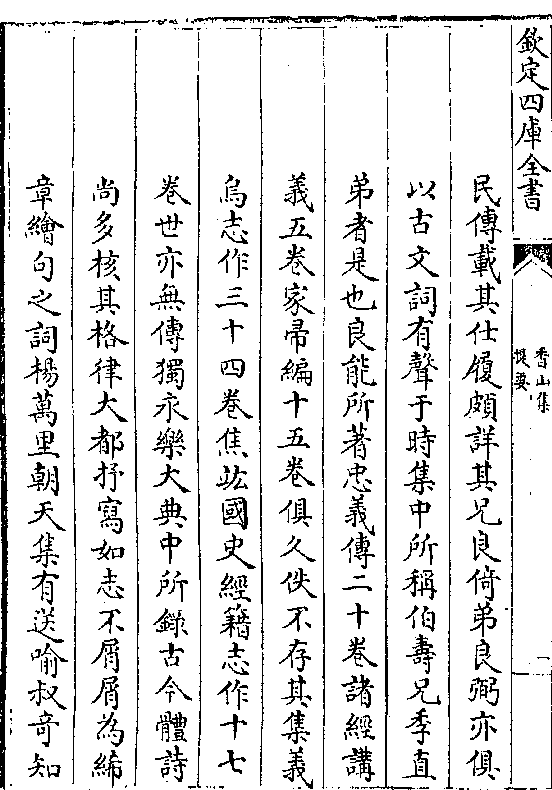 欽定四庫全書
香山集
提要
民傳載其仕履頗詳其兄良倚弟良弼亦俱
以古文詞有聲于時集中所稱伯壽兄季直
弟者是也良能所著忠義傳二十卷諸經講
義五卷家帚編十五卷俱久佚不存其集義
烏志作三十四卷焦竑國史經籍志作十七
卷世亦無傳獨永樂大典中所錄古今體詩
尚多核其格律大都抒寫如志不屑屑為絺
章繪句之詞楊萬里朝天集有送喻叔奇知